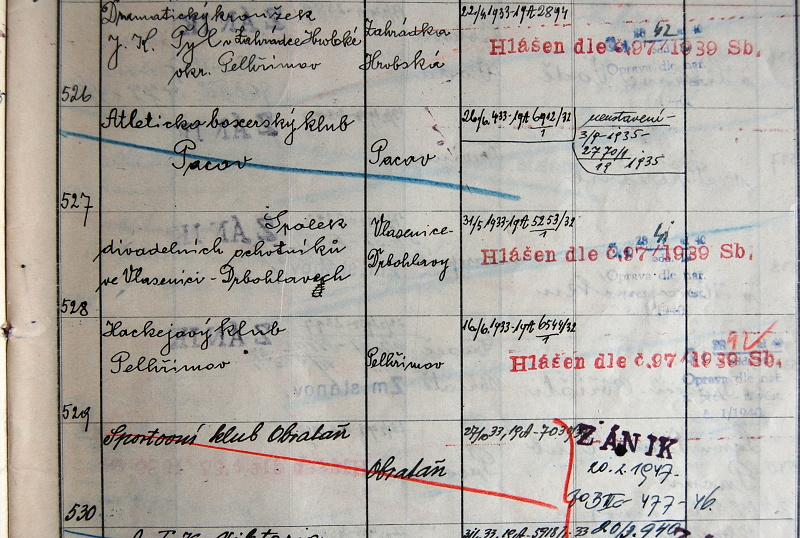 Dramatický kroužek
J. K. Tyl v Zahrádce Hrobské
okr. Pelhřimov
Zahrádka
Hrobská
22/4.1933-19A 2894
Hlášen dle č.97/1939 Sb.
526
Atleticko boxerský klub
Pacov
Pacov
26/6.1933-19A 6912/32
1
neustavení-
3/9-1935-
2770/1
19 1935
527
Spolek
divadelních ochotníků
ve Vlasenici-Drbohlavech
Vlasenice-
Drbohlavy
31/5.1933-19A 5253/32
1
Hlášen dle č.97/1939 Sb.
528
Hockejový klub
Pelhřimov
Pelhřimov
16/6.1933-19A 6544/32
1
Hlášen dle č.97/1939 Sb.
529
Sportovní klub Obrataň
Obrataň
ZÁNIK
20.2.1947.
477-46.
530
Viktoria